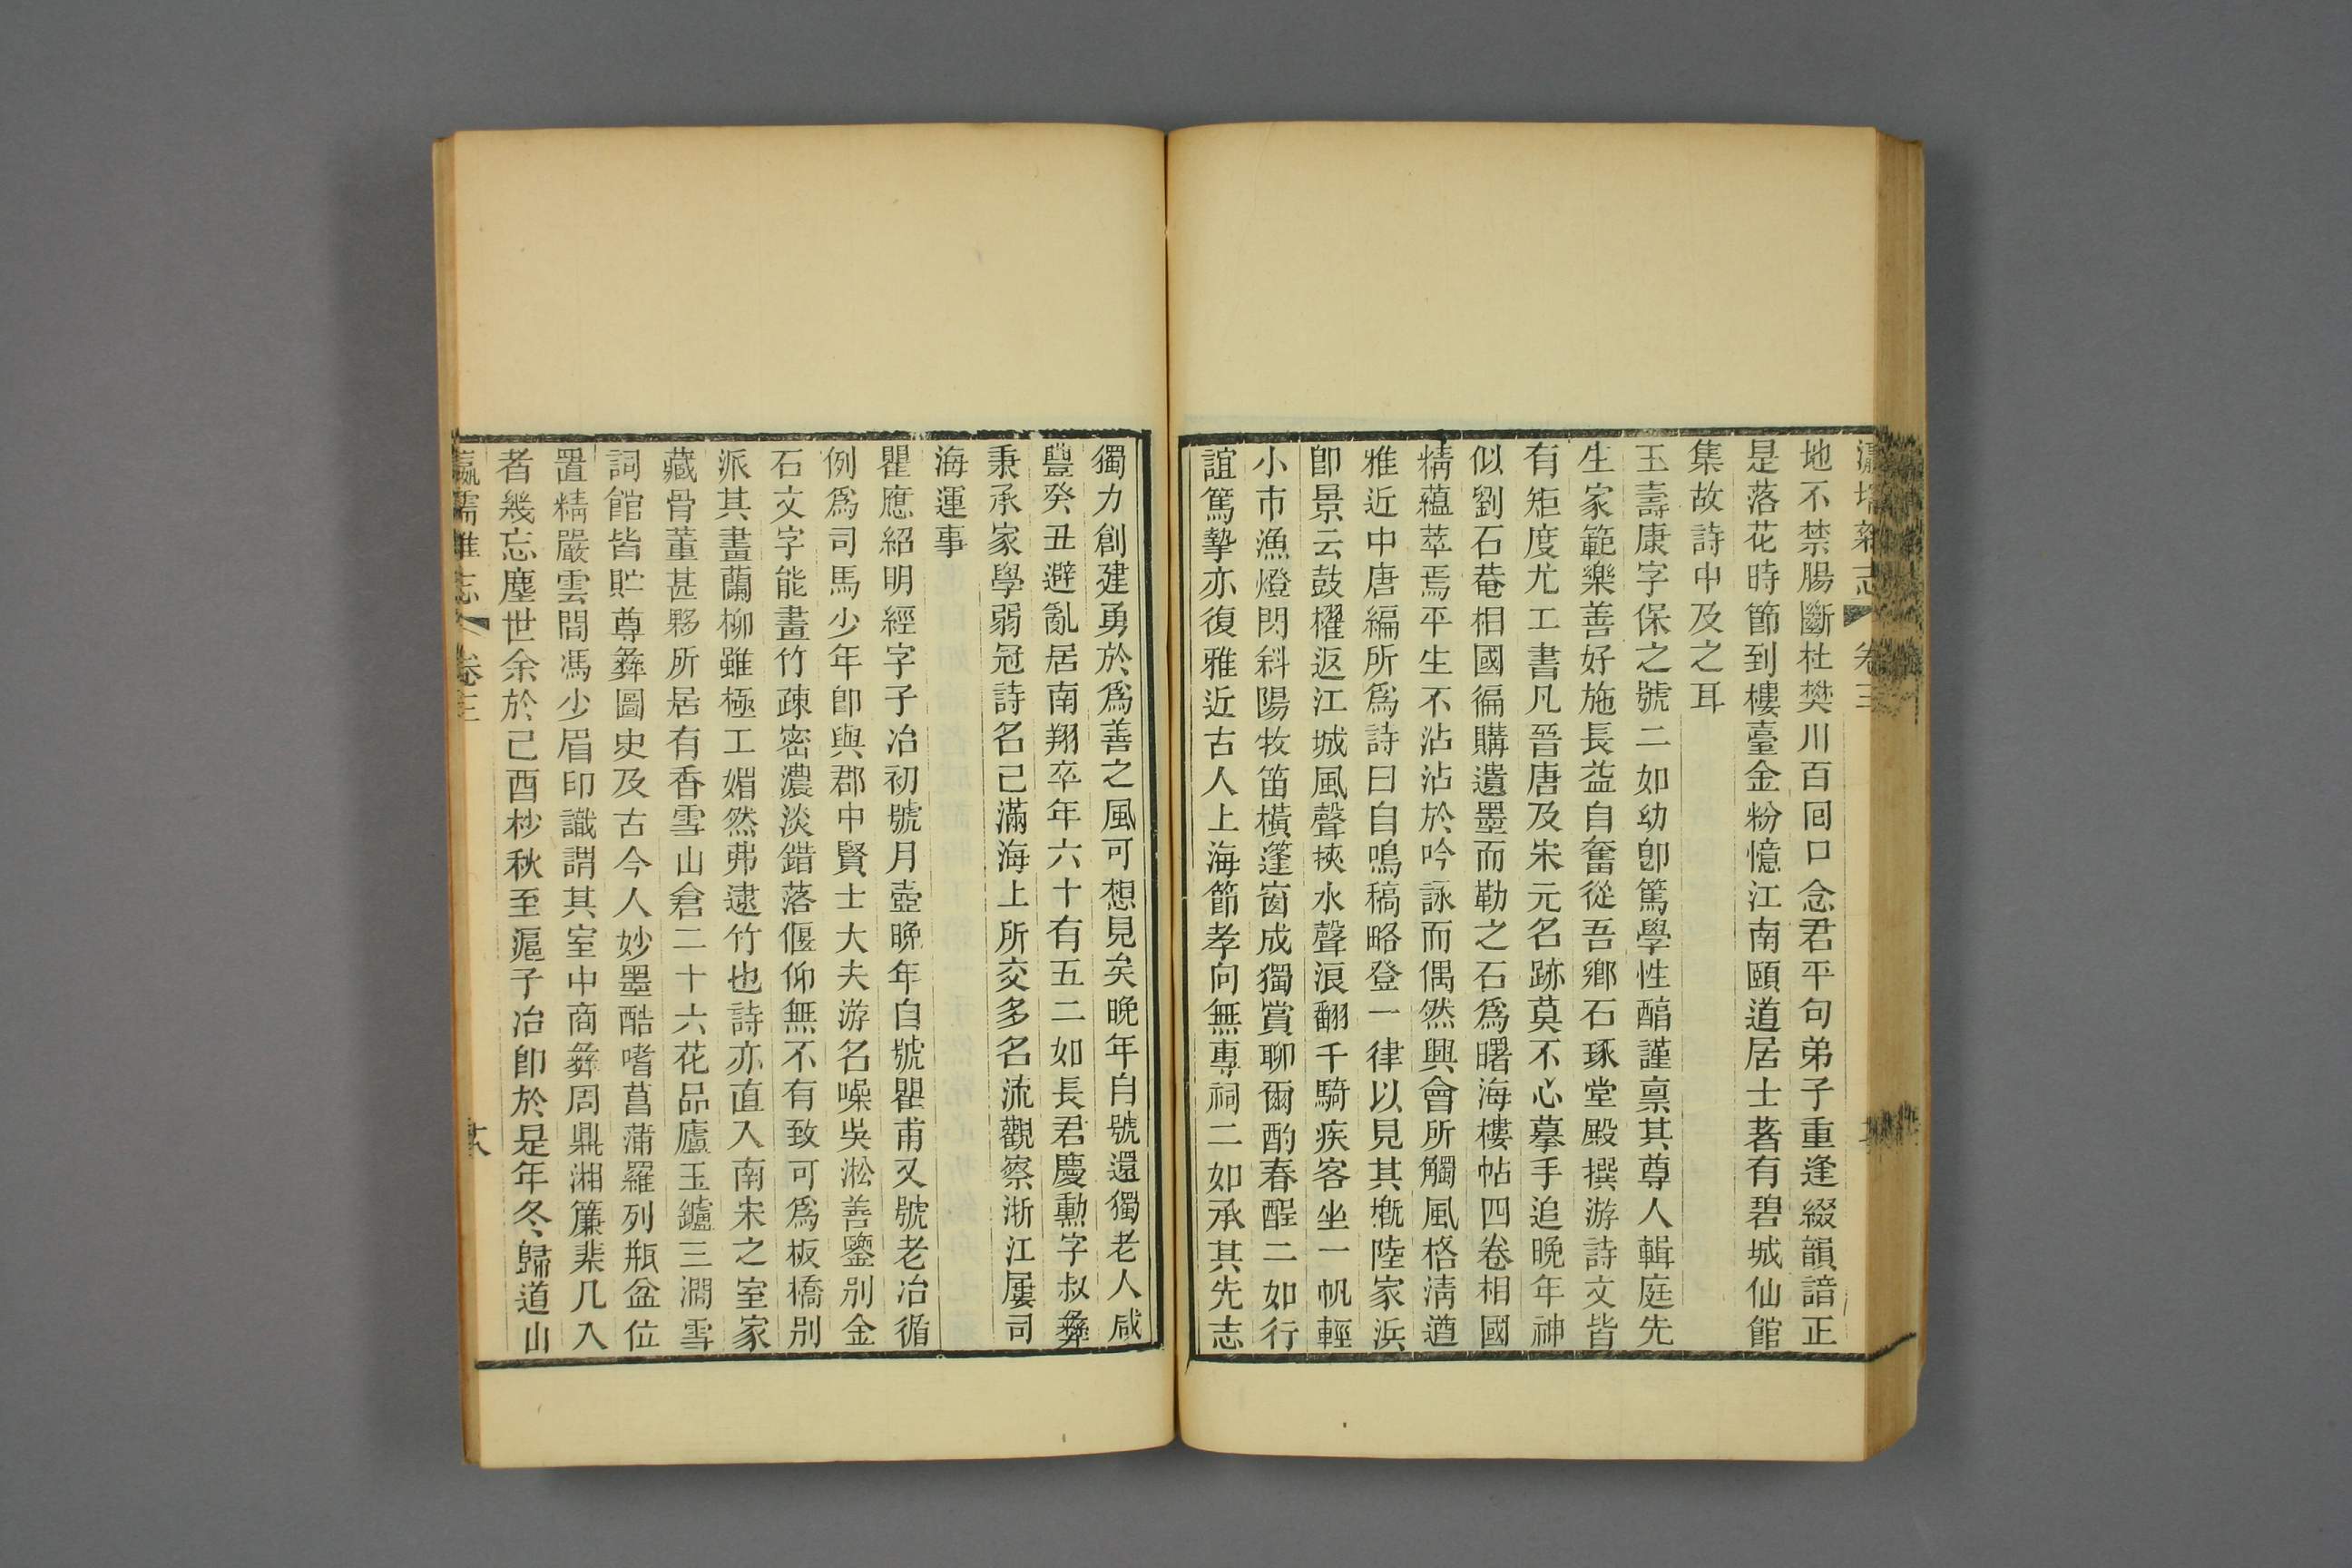 瀛壖雜志 卷三
地不禁腸斷杜樊川百回口念君平句弟子重逢綴韻諳正
是落花時節到樓臺金粉憶江南頤道居士著有碧城仙館
集故詩中及之耳
王壽康字保之號二如幼卽篤學性醕謹禀其尊人輯庭先
生家範樂善好施長益自奮從吾鄉石琢堂殿撰游詩文皆
有矩度尤工書凡晉唐及宋元名跡莫不心摹手追晚年神
似劉石菴相國徧購遺墨而勒之石爲曙海樓帖四卷相國
精蘊萃焉平生不沾沾於吟詠而偶然興會所觸風格淸遒
雅近中唐編所爲詩曰自鳴稿略登一律以見其槪陸家浜
卽景云鼓櫂返江城風聲挾水聲浪翻千騎疾客坐一帆輕
小市漁燈閃斜陽牧笛橫篷窗成獨賞聊爾酌春酲二如行
誼篤摯亦復雅近古人上海節孝向無專祠二如承其先志
獨力創建勇於爲善之風可想見矣晚年自號還獨老人咸
豐癸丑避亂居南翔卒年六十有五二如長君慶勳字叔彝
秉承家學弱冠詩名已滿海上所交多名流觀察浙江屢司
海運事
瞿應紹明經字子冶初號月壺晚年自號瞿甫又號老冶循
例爲司馬少年卽與郡中賢士大夫游名噪吳淞善鑒別金
石文字能畫竹疎密濃淡錯落偃仰無不有致可爲板橋別
派其畫蘭柳雖極工媚然弗逮竹也詩亦直入南宋之室家
藏骨董甚夥所居有香雪山倉二十六花品廬玉鑪三澗雪
詞館皆貯尊彝圖史及古今人妙墨酷嗜菖蒲羅列瓶盆位
置精嚴雲間馮少眉印識謂其室中商彝周鼎湘簾棐几入
者幾忘塵世余於己酉杪秋至滬子冶卽於是年冬歸道山
瀛壖雜志 卷三 十八